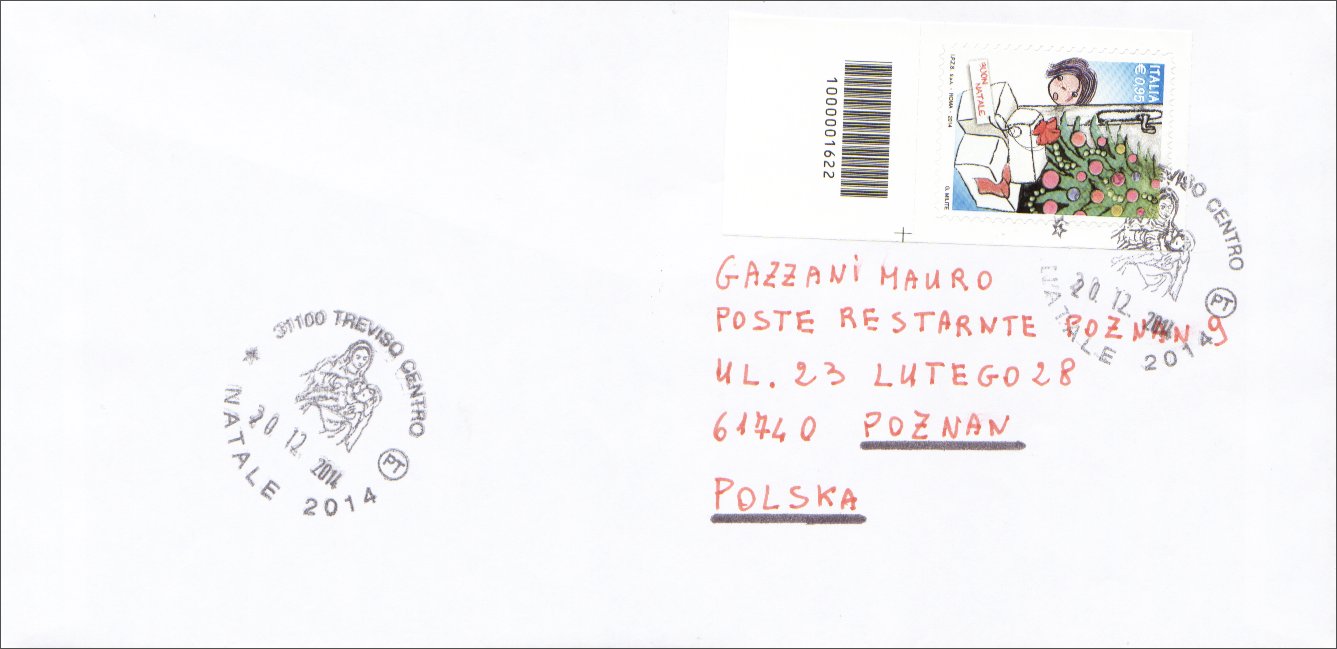 1000001622
ITALIA
€ 0,95
BUON
NATALE
I.P.Z.S. S.p.A. - ROMA - 2014
G. MILITE
GAZZANI MAURO
POSTE RESTARNTE POZNAN 9
UL. 23 LUTEGO 28
61740 POZNAN
POLSKA
TREVISO CENTRO
20.12.2014
PT
NATALE 2014
31100 TREVISO CENTRO
20.12.2014
PT
NATALE 2014